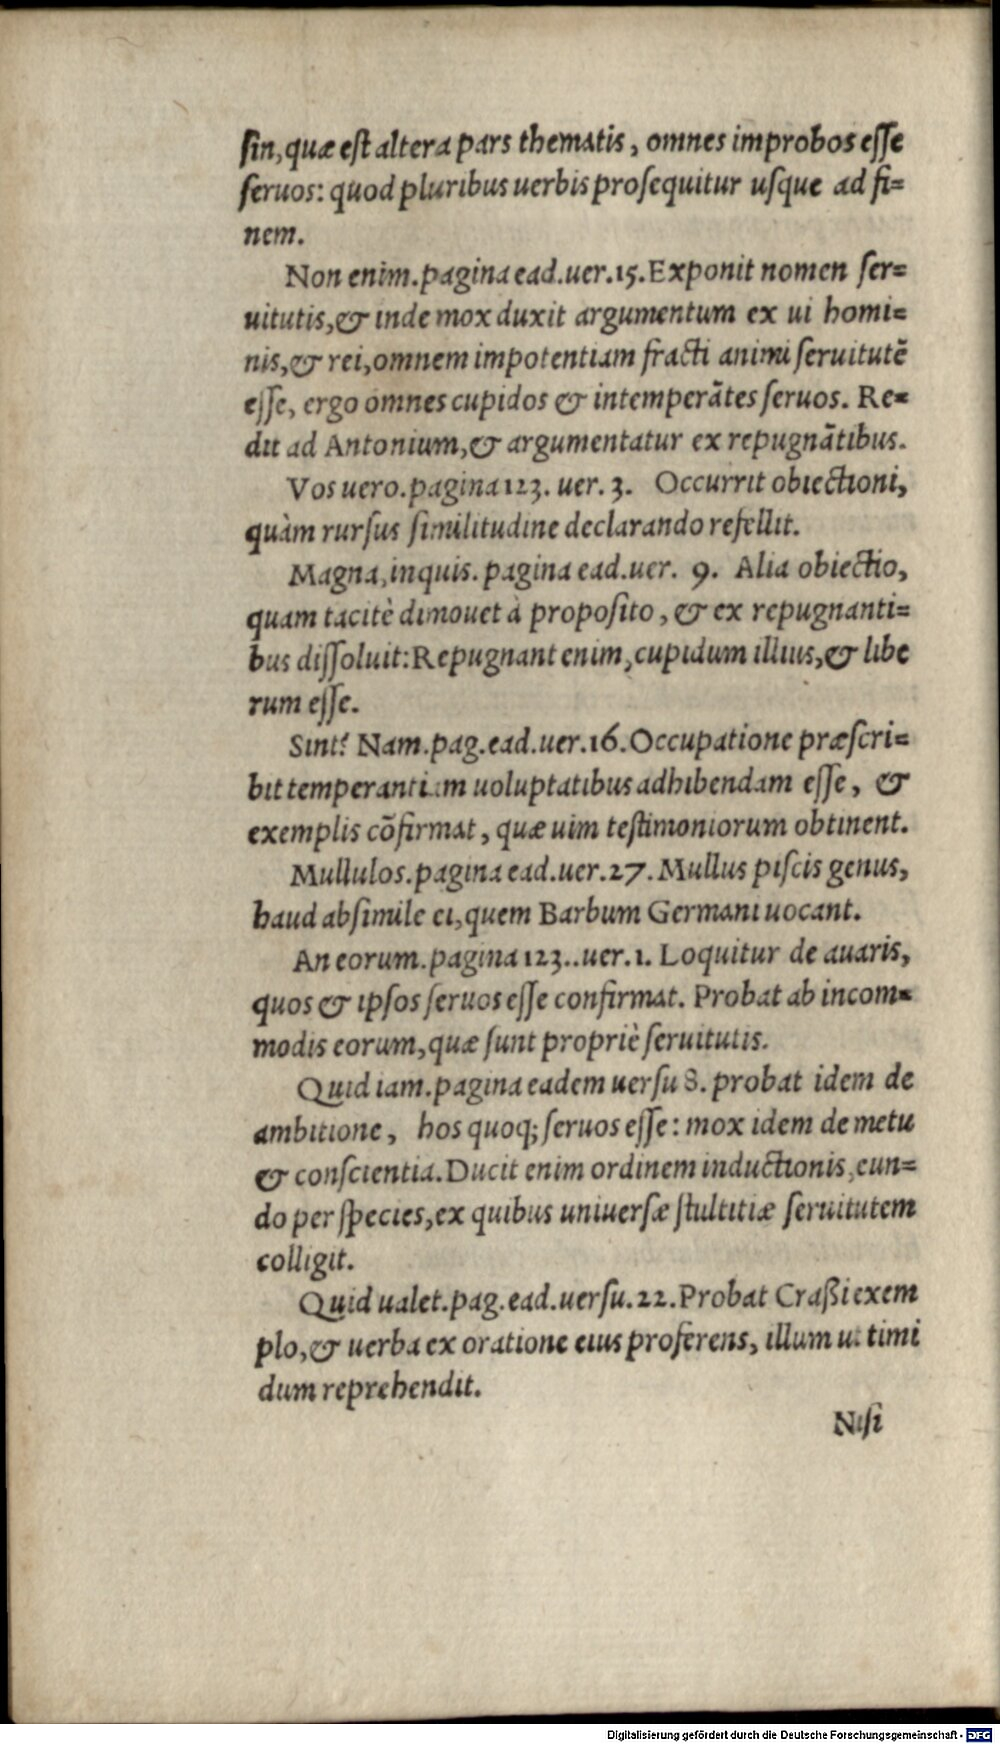 ſin, quæ eſt altera pars thematis, omnes improbos eſſe
ſeruos: quod pluribus uerbis proſequitur uſque ad fi=
nem.
Non enim. pagina ead. uer. 15. Exponit nomen ſer=
uitutis, & inde mox duxit argumentum ex ui homi=
nis, & rei, omnem impotentiam fracti animi ſeruitutē
eſſe, ergo omnes cupidos & intemperātes ſeruos. Re=
dit ad Antonium, & argumentatur ex repugnātibus.
Vos uero. pagina 123. uer. 3. Occurrit obiectioni,
quàm rurſus ſimilitudine declarando refellit.
Magna, inquis. pagina ead. uer. 9. Alia obiectio,
quam tacitè dimouet à propoſito, & ex repugnanti=
bus diſſoluit: Repugnant enim, cupidum illius, & libe
rum eſſe.
Sint? Nam. pag. ead. uer. 16. Occupatione præſcri=
bit temperantiam uoluptatibus adhibendam eſſe, &
exemplis cōfirmat, quæ uim teſtimoniorum obtinent.
Mullulos. pagina ead. uer. 27. Mullus piſcis genus,
haud abſimile ei, quem Barbum Germani uocant.
An eorum. pagina 123.. uer. 1. Loquitur de auaris,
quos & ipſos ſeruos eſſe confirmat. Probat ab incom=
modis eorum, quæ ſunt propriè ſeruitutis.
Quid iam. pagina eadem uerſu 8. probat idem de
ambitione, hos quoq; ſeruos eſſe: mox idem de metu
& conſcientia. Ducit enim ordinem inductionis, eun=
do per ſpecies, ex quibus uniuerſæ ſtultitiæ ſeruitutem
colligit.
Quid ualet. pag. ead. uerſu. 22. Probat Craßi exem
plo, & uerba ex oratione eius proferens, illum ut timi
dum reprehendit.
Niſi
Digitalisierung gefördert durch die Deutsche Forschungsgemeinschaft - DFG